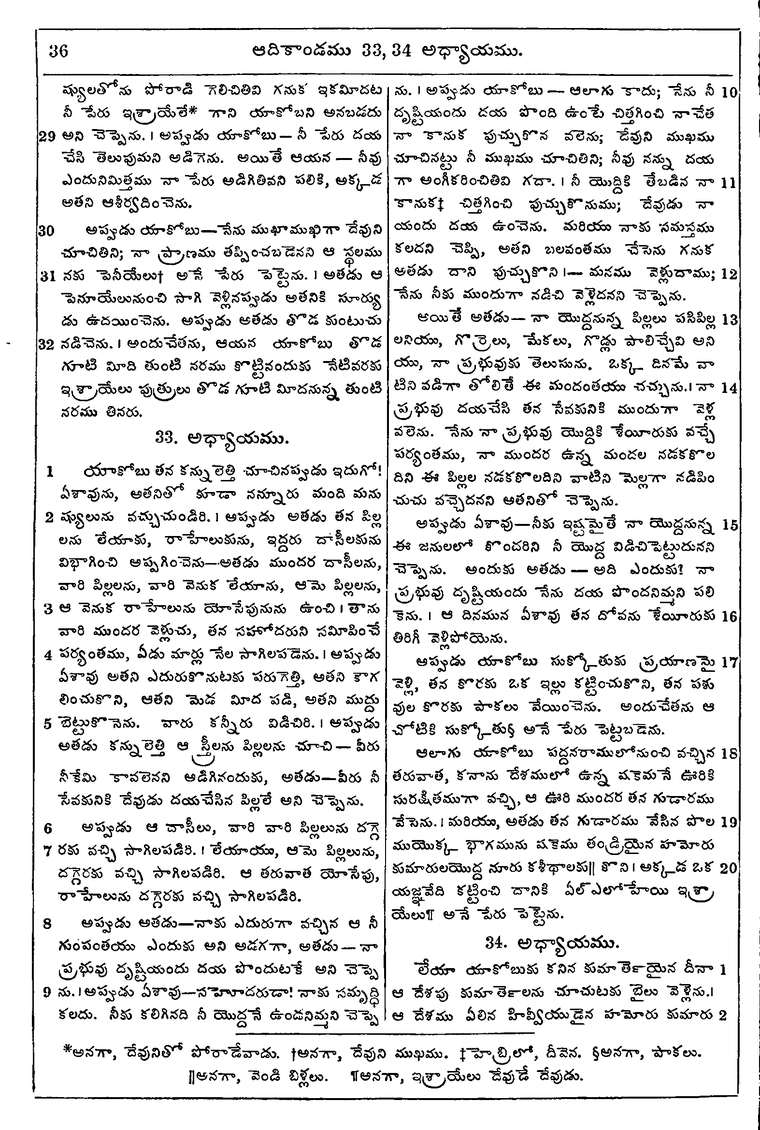 36
ఆదికాండము 33, 34 అధ్యాయము.
ష్యులతోను పోరాడి గెలిచితివి గనుక ఇకమీదట
నీ పేరు ఇశ్రాయేలే* గాని యాకోబని అనబడదు
29 అని చెప్పెను. । అప్పుడు యాకోబు — నీ పేరు దయ
చేసి తెలుపుమని అడిగెను. అయితే ఆయన — నీవు
ఎందునిమిత్తము నా పేరు అడిగితివని పలికి, అక్కడ
అతని ఆశీర్వదించెను.
30 అప్పుడు యాకోబు—నేను ముఖాముఖిగా దేవుని
చూచితిని; నా ప్రాణము తప్పించబడెనని ఆ స్థలము
31 నకు పెనీయేలు† అనే పేరు పెట్టెను. । అతడు ఆ
పెనూయేలునుంచి సాగి వెళ్లినప్పుడు అతనికి సూర్యు
డు ఉదయించెను. అప్పుడు అతడు తొడ కుంటుచు
32 నడిచెను. । అందుచేతను, ఆయన యాకోబు తొడ
గూటి మీది తుంటి నరము కొట్టినందుకు నేటివరకు
ఇశ్రాయేలు పుత్రులు తొడ గూటి మీదనున్న తుంటి
నరము తినరు.
33. అధ్యాయము.
1 యాకోబు తన కన్నులెత్తి చూచినప్పుడు ఇదుగో!
ఏశావును, అతనితో కూడా నన్నూరు మంది మను
2 ష్యులును వచ్చుచుండిరి. । అప్పుడు అతడు తన పిల్ల
లను లేయాకు, రాహేలుకును, ఇద్దరు దాసీలకును
విభాగించి అప్పగించెను—అతడు ముందర దాసీలను,
వారి పిల్లలను, వారి వెనుక లేయాను, ఆమె పిల్లలను,
3 ఆ వెనుక రాహేలును యోసేపునును ఉంచి। తాను
వారి ముందర వెళ్లుచు, తన సహోదరుని సమీపించే
4 పర్యంతము, ఏడు మార్లు నేల సాగిలపడెను. । అప్పుడు
ఏశావు అతని ఎదురుకొనుటకు పరుగెత్తి, అతని కాగ
లించుకొని, ఆతని మెడ మీద పడి, అతని ముద్దు
5 బెట్టుకొనెను. వారు కన్నీరు విడిచిరి. । అప్పుడు
అతడు కన్నులెత్తి ఆ స్త్రీలను పిల్లలను చూచి — వీరు
నీకేమి కావలెనని అడిగినందుకు, అతడు—వీరు నీ
సేవకునికి దేవుడు దయచేసిన పిల్లలే అని చెప్పెను.
6 అప్పుడు ఆ దాసీలు, వారి వారి పిల్లలును దగ్గె
7 రకు వచ్చి సాగిలపడిరి. । లేయాయు, ఆమె పిల్లలును,
దగ్గెరకు వచ్చి సాగిలపడిరి. ఆ తరువాత యోసేపు,
రాహేలును దగ్గెరకు వచ్చి సాగిలపడిరి.
8 అప్పుడు అతడు—నాకు ఎదురుగా వచ్చిన ఆ నీ
గుంపంతయు ఎందుకు అని అడగగా, అతడు — నా
ప్రభువు దృష్టియందు దయ పొందుటకే అని చెప్పె
9 ను. । అప్పుడు ఏశావు—సహోదరుడా! నాకు సమృద్ధి
కలదు. నీకు కలిగినది నీ యొద్దనే ఉండనిమ్మని చెప్పె
ను. । అప్పుడు యాకోబు — ఆలాగు కాదు; నేను నీ 10
దృష్టియందు దయ పొంది ఉంటే చిత్తగించి నాచేత
నా కానుక పుచ్చుకొన వలెను; దేవుని ముఖము
చూచినట్టు నీ ముఖము చూచితిని; నీవు నన్ను దయ
గా అంగీకరించితివి గదా. । నీ యొద్దికి తేబడిన నా 11
కానుక‡ చిత్తగించి పుచ్చుకొనుము; దేవుడు నా
యందు దయ ఉంచెను. మరియు నాకు సమస్తము
కలదని చెప్పి, అతని బలవంతము చేసెను గనుక
అతడు దాని పుచ్చుకొని।— మనము వెళ్లుదాము; 12
నేను నీకు ముందుగా నడిచి వెళ్లెదనని చెప్పెను.
అయితే అతడు — నా యొద్దనున్న పిల్లలు పసిపిల్ల 13
లనియు, గొర్రెలు, మేకలు, గొడ్లు పాలిచ్చేవి అని
యు, నా ప్రభువుకు తెలుసును. ఒక్క దినమే వా
టిని వడిగా తోలితే ఈ మందంతయు చచ్చును. । నా 14
ప్రభువు దయచేసి తన సేవకునికి ముందుగా వెళ్ల
వలెను. నేను నా ప్రభువు యొద్దికి శేయీరుకు వచ్చే
పర్యంతము, నా ముందర ఉన్న మందల నడకకొల
దిని ఈ పిల్లల నడకకొలదిని వాటిని మెల్లగా నడిపిం
చుచు వచ్చెదనని ఆతనితో చెప్పెను.
అప్పుడు ఏశావు—నీకు ఇష్టమైతే నా యొద్దనున్న 15
ఈ జనులలో కొందరిని నీ యొద్ద విడిచిపెట్టుదునని
చెప్పెను. అందుకు అతడు — అది ఎందుకు? నా
ప్రభువు దృష్టియందు నేను దయ పొందనిమ్మని పలి
కెను. । ఆ దినమున ఏశావు తన దోవను శేయీరుకు 16
తిరిగీ వెళ్లిపోయెను.
అప్పుడు యాకోబు సుక్కోతుకు ప్రయాణమై 17
వెళ్లి, తన కొరకు ఒక ఇల్లు కట్టించుకొని, తన పశు
వుల కొరకు పాకలు వేయించెను. అందుచేతను ఆ
చోటికి సుక్కోతు§ అనే పేరు పెట్టబడెను.
ఆలాగు యాకోబు పద్దనరాములోనుంచి వచ్చిన 18
తరువాత, కనాను దేశములో ఉన్న షకెమనే ఊరికి
సురక్షితముగా వచ్చి, ఆ ఊరి ముందర తన గుడారము
వేసెను. । మరియు, అతడు తన గుడారము వేసిన పొల 19
ముయొక్క భాగమును షకెము తండ్రియైన హమోరు
కుమారులయొద్ద నూరు కశీథాలకు‖ కొని। అక్కడ ఒక 20
యజ్ఞవేది కట్టించి దానికి ఏల్ఎలోహేయి ఇశ్రా
యేలు¶ అనే పేరు పెట్టెను.
34. అధ్యాయము.
లేయా యాకోబుకు కనిన కుమార్తెయైన దీనా 1
ఆ దేశపు కుమార్తెలను చూచుటకు బైలు వెళ్లెను. ।
ఆ దేశము ఏలిన హివ్వీయుడైన హమోరు కుమారు 2
*అనగా, దేవునితో పోరాడేవాడు. †అనగా, దేవుని ముఖము. ‡హెబ్రిలో, దీవెన. §అనగా, పాకలు.
‖అనగా, వెండి బిళ్లలు. ¶అనగా, ఇశ్రాయేలు దేవుడే దేవుడు.